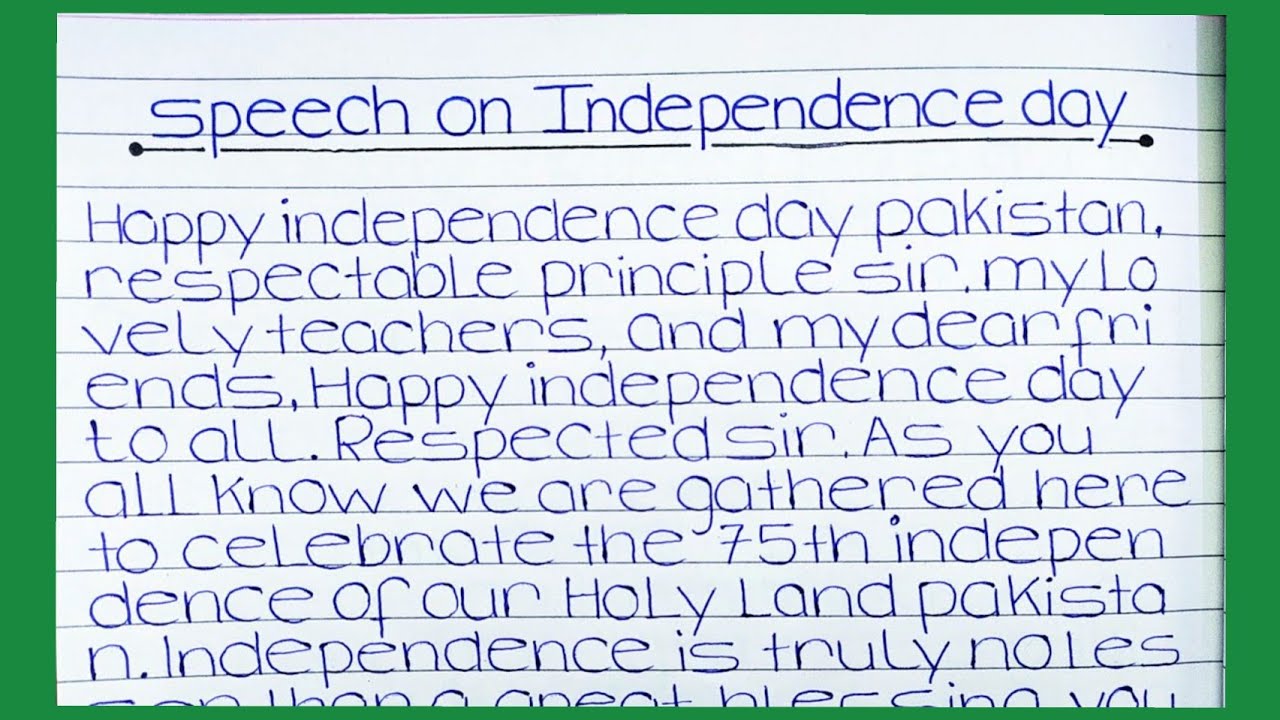 Speech on Independence day
Happy independence day pakistan,
respectable principle sir. my Lo
vely teachers, and my dear fri
ends, Happy independence day
to all. Respected sir. As you
all know we are gathered here
to celebrate the 75th indepen
dence of our Holy Land pakista
n. Independence is truly no les
than a great blessing you